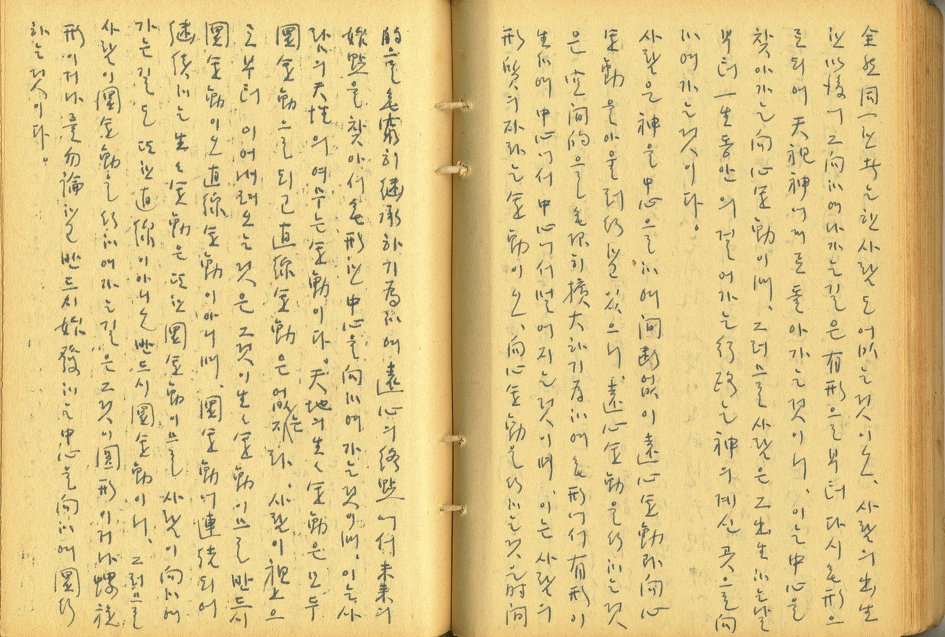 全然同一한 者는 한 사람도 어ᄇᆞᆺ는 것이오、사람의 出生
한 以後에 그 向하여 나가는 길은 有形으로부터 다시 無形으
로 되여 天祖神에게로 돌아가는 것이니、이는 中心을
찾아가는 向心運動이며、그러므로 사람은 그 出生하는 날
부터 一生동안의 걸어가는 行路는 神의 계신 곳으로 向
하여 가는 것이다。
사람은 神을 中心으로 하여 間断없이 遠心運動과 向心
運動을 아울러 行하고 있으니、遠心運動을 行하는 것
은 空間的으로 無限히 擴大하기 爲하여 無形에서 有形이
生하여 中心에서 中心에서 멀어지는 것이며、이는 사람의
形 的의 자라는 運動이오、向心運動을 行하는 것은 時間
的으로 無窮히 継承하기 爲하여 遠心의 終點에서 未來의
始點을 찾아서 無形한 中心을 向하여 가는 것이며、이는 사
람의 天性의 여무는 運動이다。天地의 生生運動은 모두
圓運動으로 되고 直線運動은 없는지라、사람이 祖上으
로부터 이어내려오는 것은 그것이 生生運動이므로 반드시
圓運動이오 直線運動이 아니며、圓運動이 連続되여
継続하는 生生運動은 또한 圓運動이므로 사람이 向하여
가는 길도 또한 直線이 아니오 반드시 圓運動이니、그러므로
사람이 圓運動을 行하여 가는 길은 그것이 圓形이거나 螺旋
形이거나를 勿論하고 반드시 始發하는 中心을 向하여 圓行
하는 것이다。